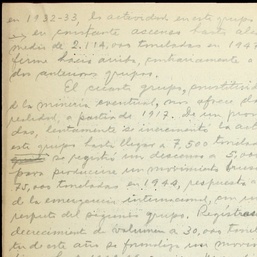 en 1932-33, la actividad en este grupo
en constante ascenso hasta
medio de 2,114,000 toneladas en 1947
firme dieciseis años, contrariamente a
dos anteriores grupos.
El cuarto grupo, constituido
de la minería eventual, nos ofrece
realidad, a partir de 1917. De un
dos, lentamente se incrementó la
este grupo hasta llegar a 7,500 toneladas
se registró un descenso a 5,000
para producirse un movimiento brusco
75,000 toneladas en 1944, respuesta a
de la emergencia internacional, en un
respecto del siguiente grupo. Registra
decrecimiento de volumen a 30,000
de este año se produjo un movi